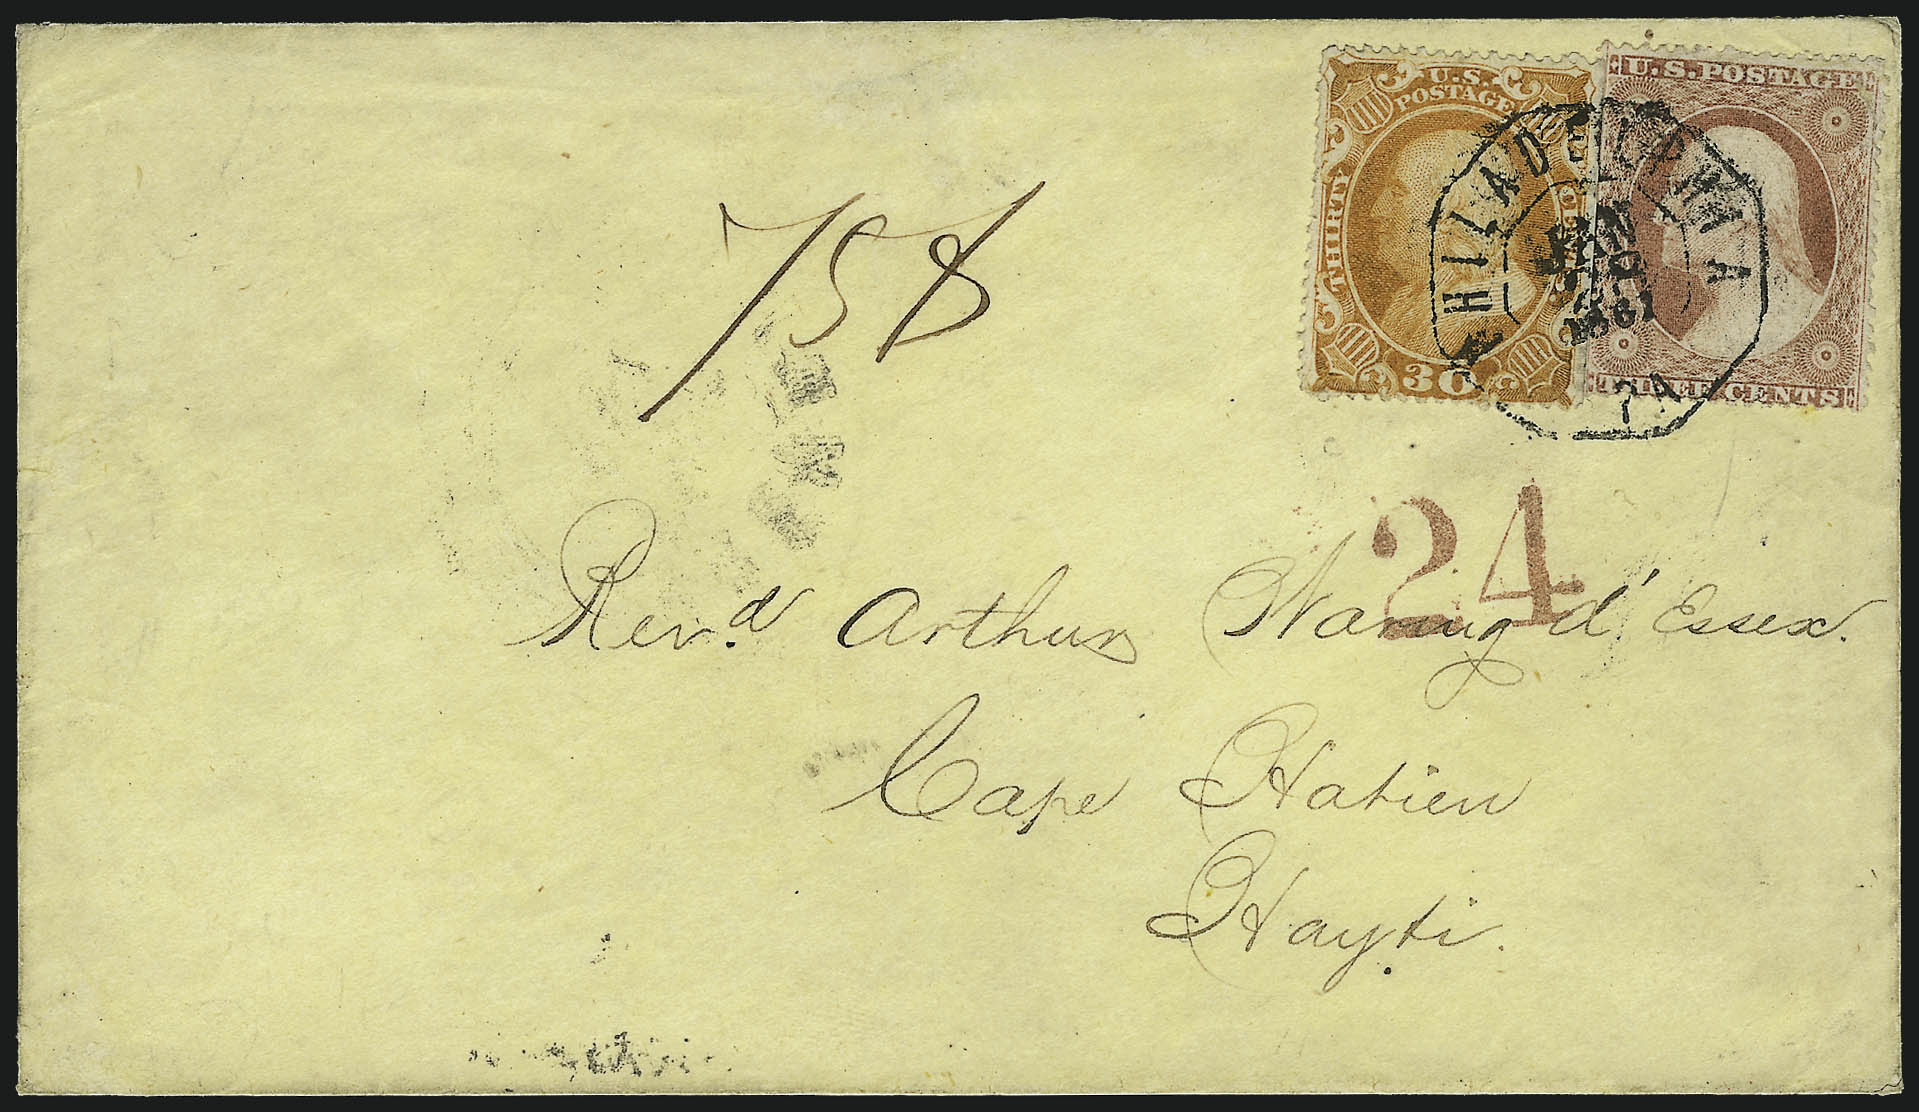 U.S. POSTAGE
THIRTY CENTS
30
U.S. POSTAGE
THREE CENTS
PHILADELPHIA
JAN
1861
PA
24
Revd. Arthur Waring d'Essex.
Cape Hatien
Hayti.